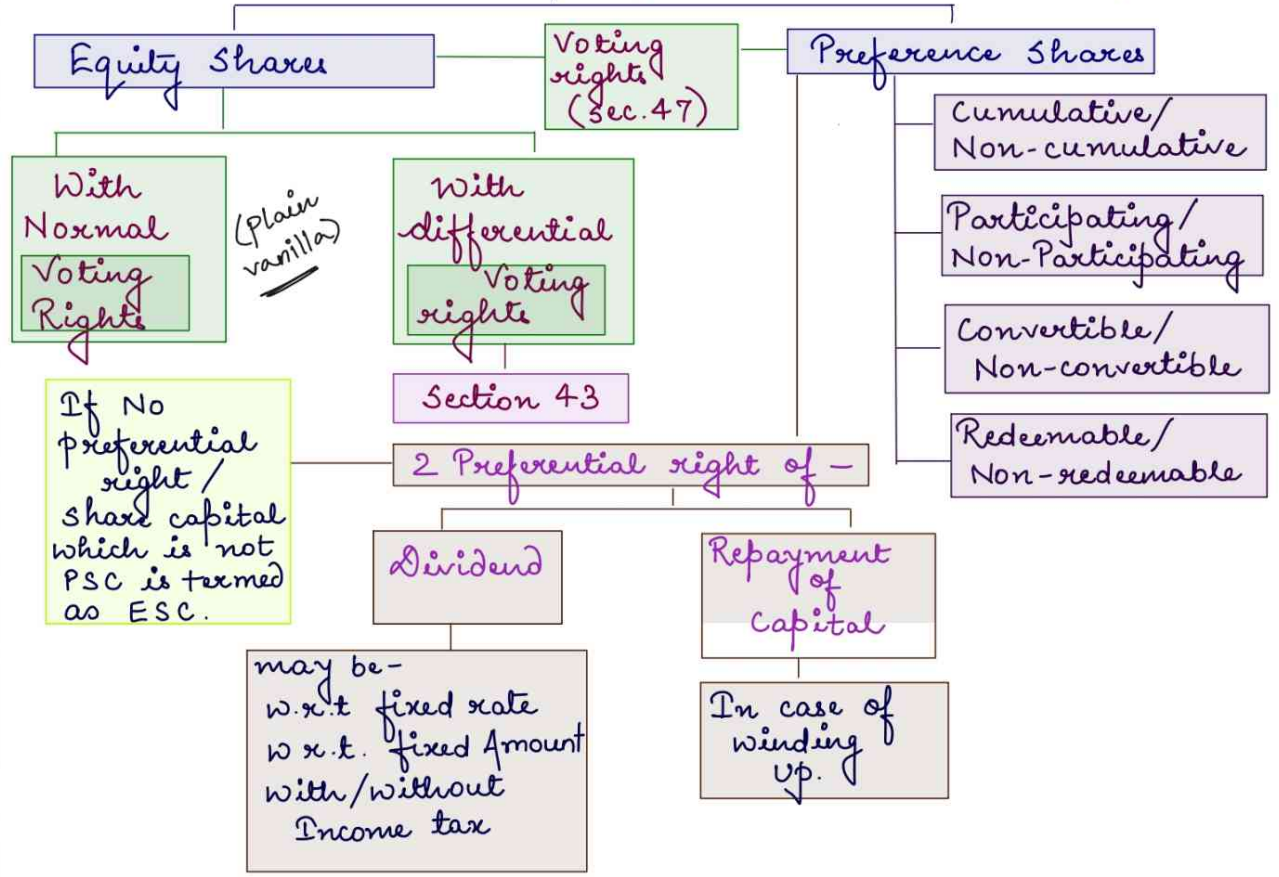 Equity Shares
Voting
rights
(sec. 47)
Preference Shares
With
Normal
Voting
Rights
(Plain
vanilla)
With
differential
Voting
rights
Section 43
Cumulative/
Non-cumulative
Participating/
Non-Participating
Convertible/
Non-convertible
Redeemable/
Non-redeemable
If No
preferential
right/
share capital
which is not
PSC is termed
as ESC.
2 Preferential right of -
Dividend
Repayment
of
Capital
may be-
w.r.t fixed rate
w r.t. fixed Amount
with/without
Income tax
In case of
winding
up.